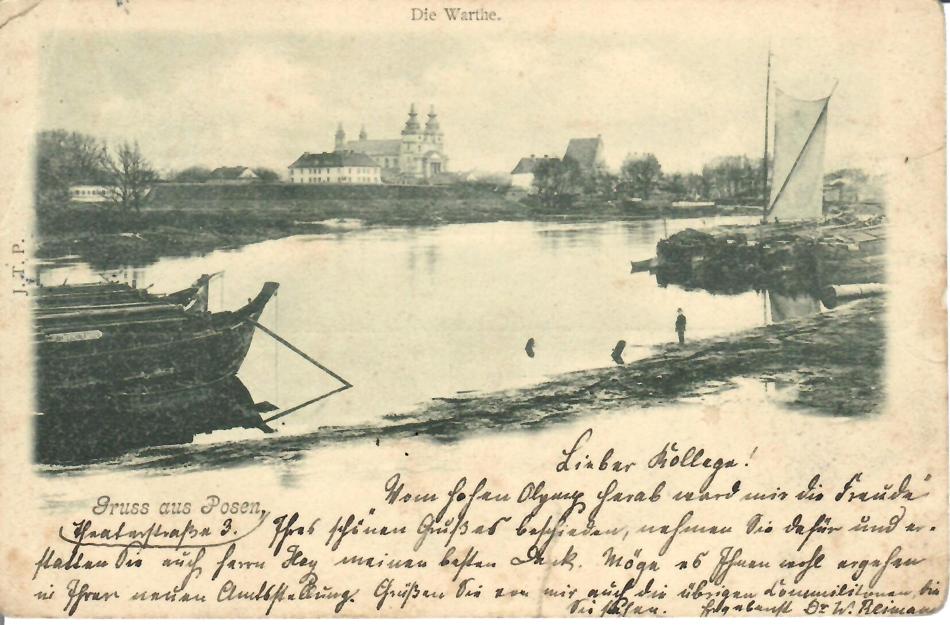 Die Warthe.
J. T. P.
Gruss aus Posen,
Theaterstraße 3.
Lieber Kollege!
Vom hohen Olymp herab ward mir die Freude
Ihres schönen Grußes beschieden, nehmen Sie dafür und er-
statten Sie auch Herrn Hey meinen besten Dank. Möge es Ihnen wohl ergehen
in Ihrer neuen Amtsstellung. Grüßen Sie von mir auch die übrigen Commilitonen, die
Sie sehen. Ergebenst Dr W. Reimann